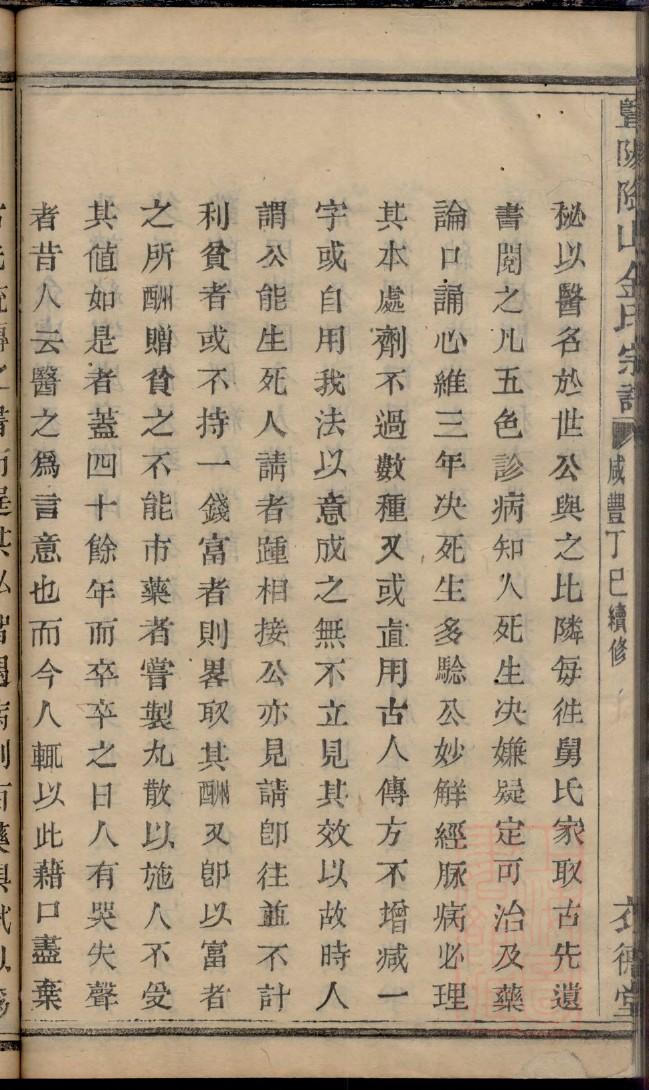 暨陽陰山金氏宗譜
咸豐丁巳續修
衣德堂
秘以醫名於世公與之比隣每徃舅氏家取古先遺
書閱之凡五色診病知人死生决嫌疑定可治及藥
論口誦心維三年决死生多騐公妙解經脈病必理
其本處劑不過數種又或直用古人傳方不增减一
字或自用我法以意成之無不立見其效以故時人
謂公能生死人請者踵相接公亦見請卽往並不計
利貧者或不持一錢富者則畧取其酬又卽以富者
之所酬贈貧之不能市藥者嘗製丸散以施人不受
其值如是者蓋四十餘年而卒卒之日人有哭失聲
者昔人云醫之爲言意也而今人輒以此藉口盡棄